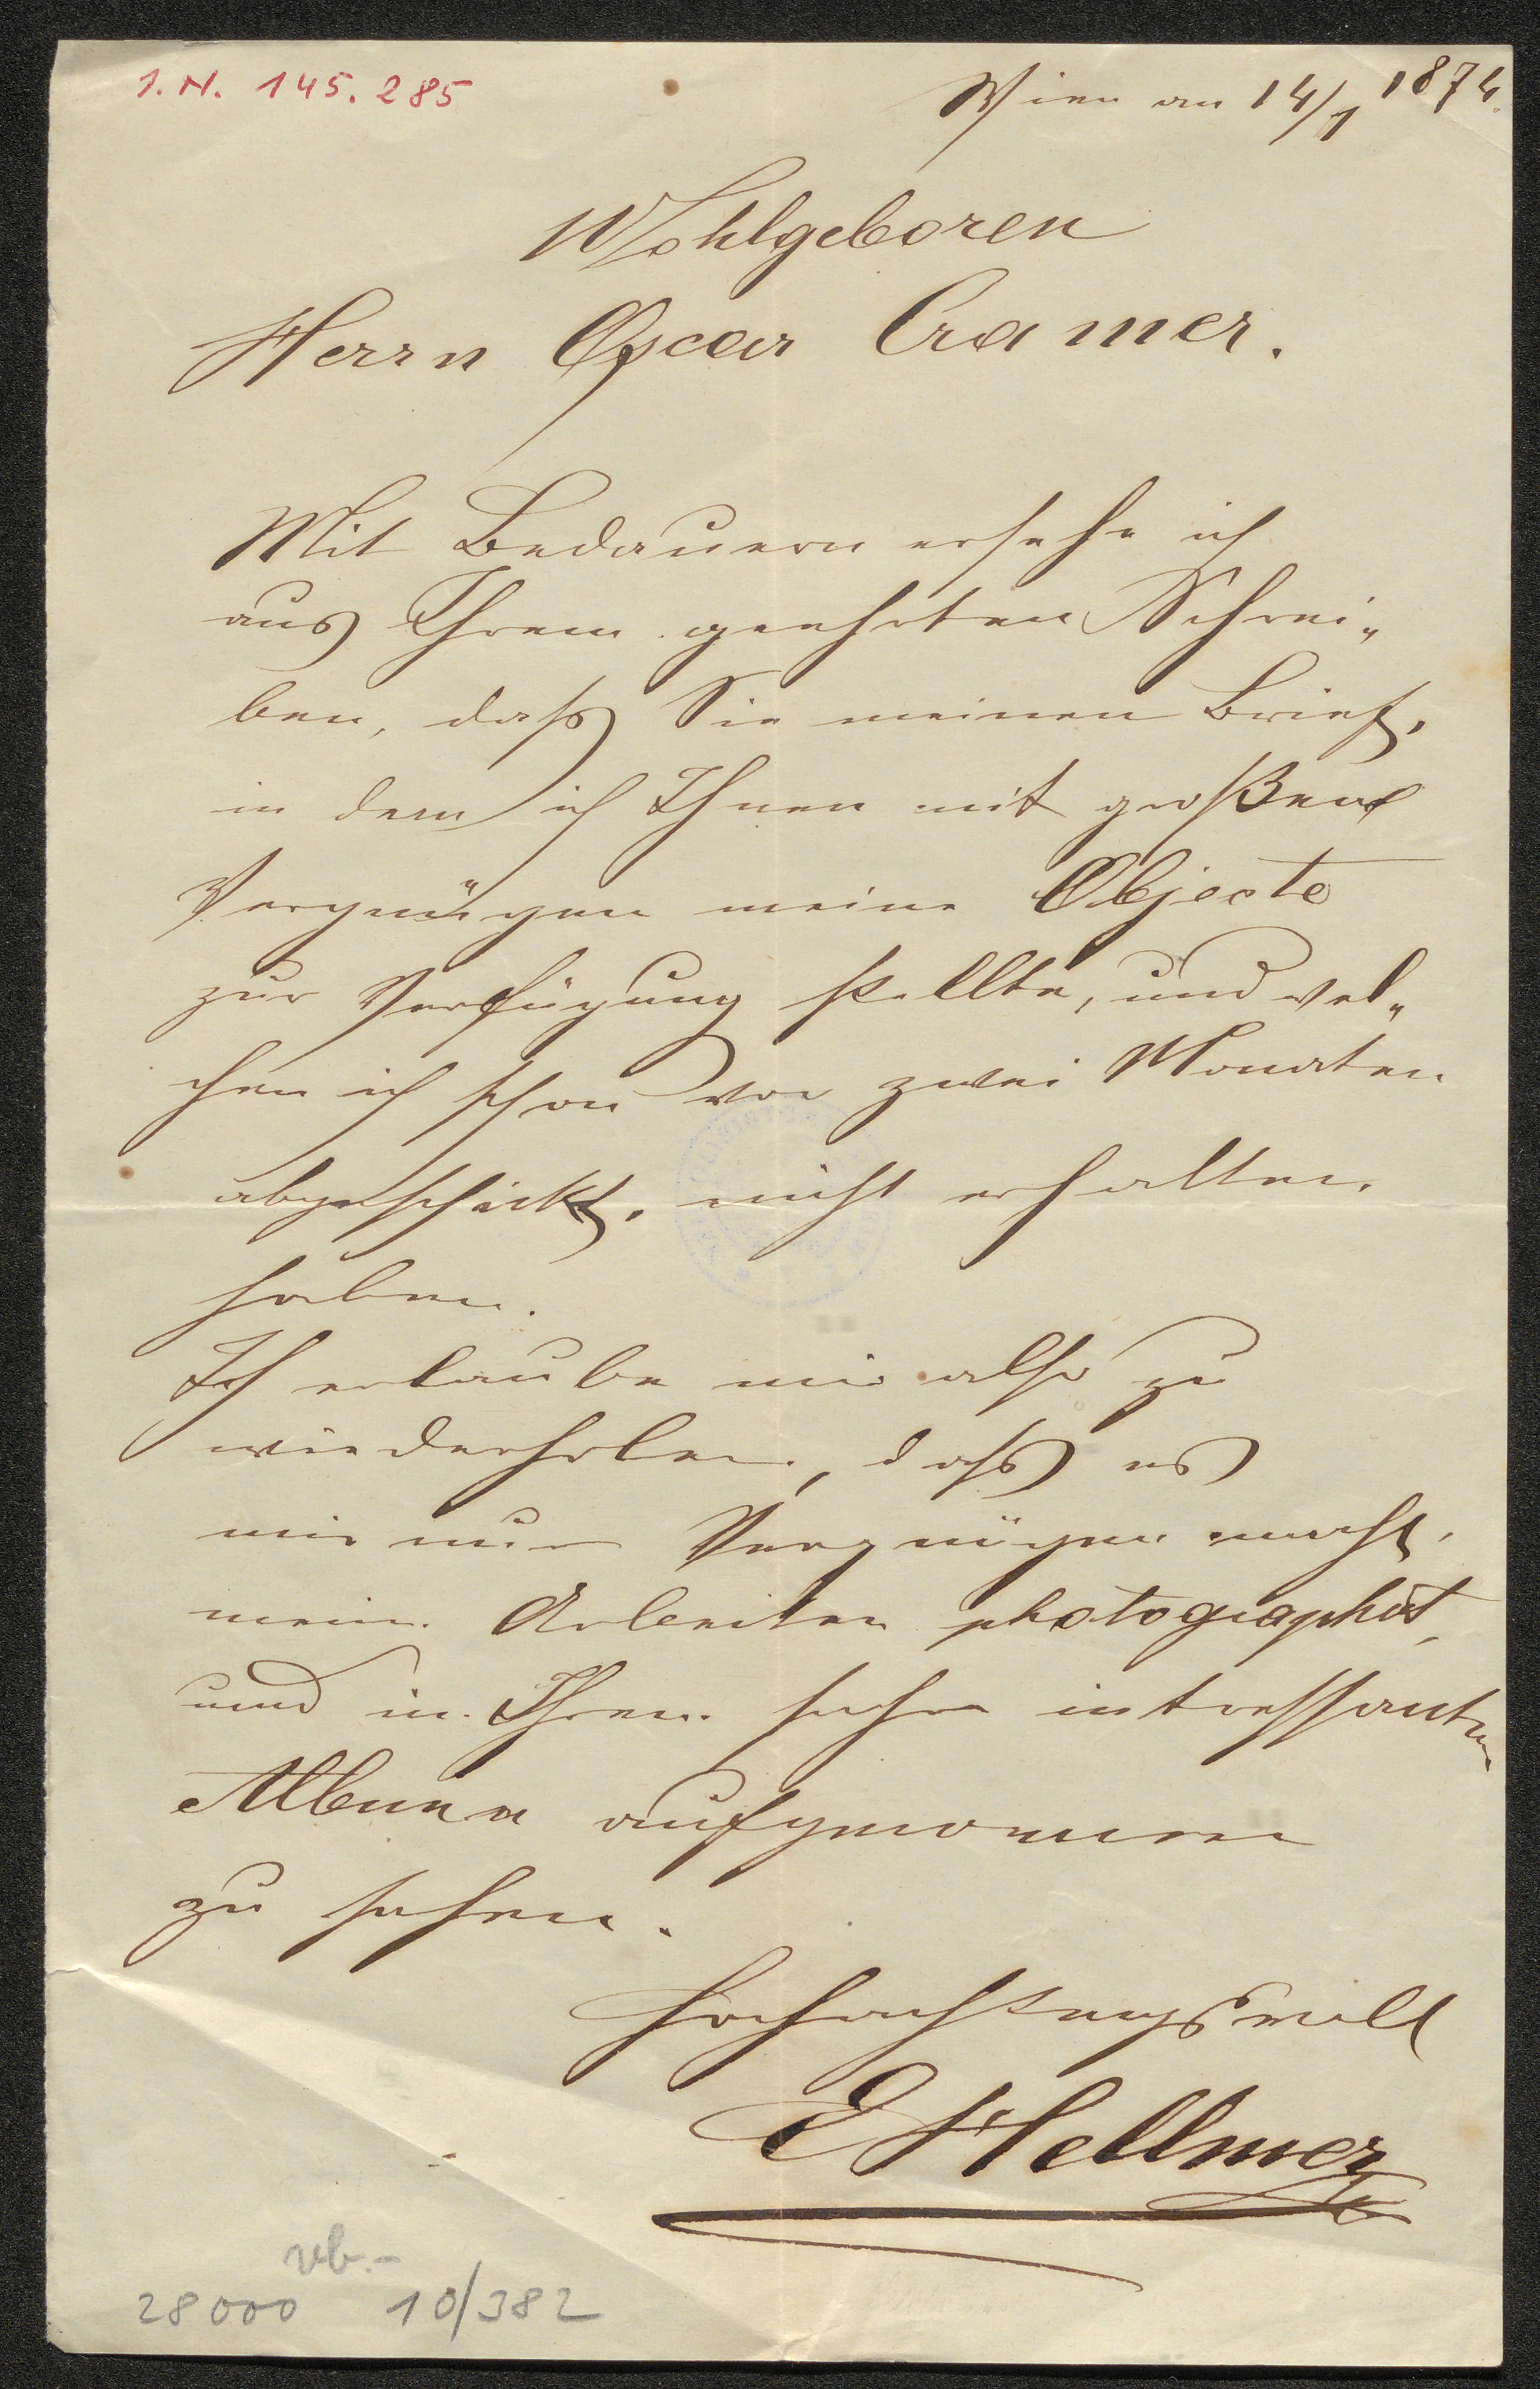 I. N. 145.285
Wien am 14/1 1874.
Wohlgeboren
Herrn Oscar Cramer.
Mit Bedauern ersehe ich
aus Ihrem geehrten Schrei„
ben, daß Sie meinen Brief,
in dem ich Ihnen mit großem
Vergnügen meine Objecte
zur Verfügung stellte, und wel„
chen ich schon vor zwei Monaten
abgeschickt, nicht erhalten
haben.
Ich erlaube mir also zu
wiederholen, daß es
mir nur Vergnügen macht,
meine Arbeiten photographirt,
und in Ihrem sehr intressanten
Album aufgenommen
zu sehen.
Hochachtungsvoll
E Hellmer
28000 10/382